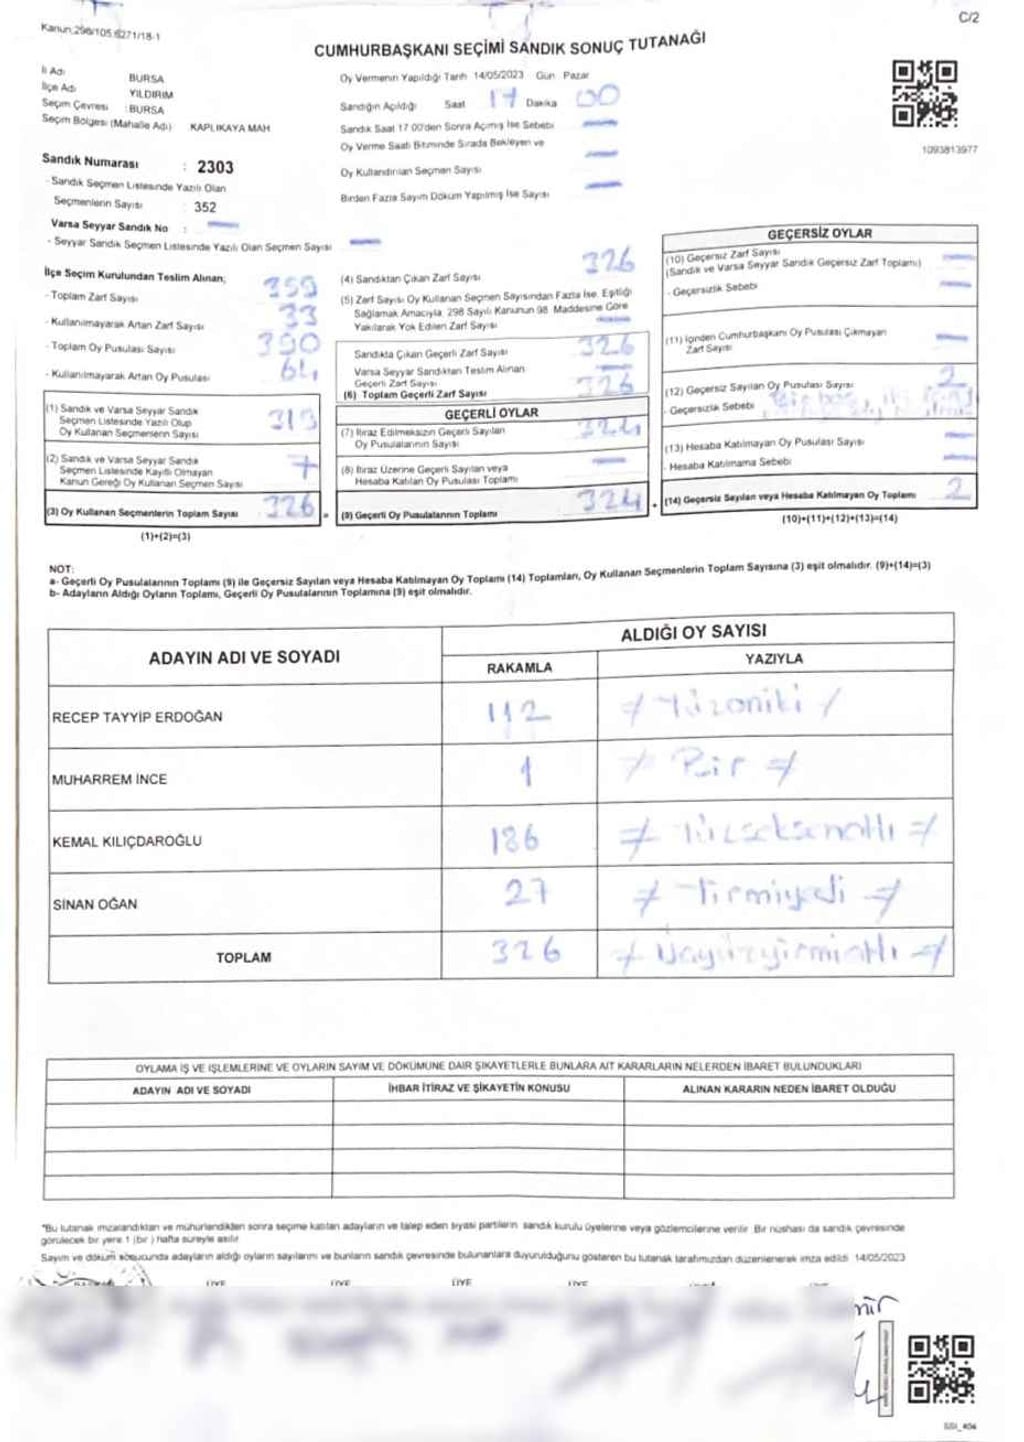 Kanun:298/105.6271/18-1
C/2
CUMHURBAŞKANI SEÇİMİ SANDIK SONUÇ TUTANAĞI
İli Adı BURSA
İlçe Adı YILDIRIM
Seçim Çevresi : BURSA
Seçim Bölgesi (Mahalle Adı) KAPLIKAYA MAH
Sandık Numarası : 2303
- Sandık Seçmen Listesinde Yazılı Olan
Seçmenlerin Sayısı : 352
Varsa Seyyar Sandık No : —
- Seyyar Sandık Seçmen Listesinde Yazılı Olan Seçmen Sayısı —
Oy Vermenin Yapıldığı Tarih 14/05/2023 Gün Pazar
Sandığın Açıldığı Saat 17 Dakika 00
Sandık Saat 17 00'den Sonra Açılmış İse Sebebi —
Oy Verme Saati Bitiminde Sırada Bekleyen ve
Oy Kullandırılan Seçmen Sayısı —
Birden Fazla Sayım Döküm Yapılmış İse Sayısı —
1093813977
İlçe Seçim Kurulundan Teslim Alınan;
- Toplam Zarf Sayısı 359
- Kullanılmayarak Artan Zarf Sayısı 33
- Toplam Oy Pusulası Sayısı 390
- Kullanılmayarak Artan Oy Pusulası 64
(1) Sandık ve Varsa Seyyar Sandık
Seçmen Listesinde Yazılı Olup
Oy Kullanan Seçmenlerin Sayısı 319
(2) Sandık ve Varsa Seyyar Sandık
Seçmen Listesinde Kayıtlı Olmayan
Kanun Gereği Oy Kullanan Seçmen Sayısı 7
(3) Oy Kullanan Seçmenlerin Toplam Sayısı 326 =
(1)+(2)=(3)
(4) Sandıktan Çıkan Zarf Sayısı 326
(5) Zarf Sayısı Oy Kullanan Seçmen Sayısından Fazla İse, Eşitliği
Sağlamak Amacıyla, 298 Sayılı Kanunun 98. Maddesine Göre
Yakılarak Yok Edilen Zarf Sayısı —
Sandıkta Çıkan Geçerli Zarf Sayısı 326
Varsa Seyyar Sandıktan Teslim Alınan
Geçerli Zarf Sayısı —
(6) Toplam Geçerli Zarf Sayısı 326
GEÇERLİ OYLAR
(7) İtiraz Edilmeksizin Geçerli Sayılan
Oy Pusulalarının Sayısı 324
(8) İtiraz Üzerine Geçerli Sayılan veya
Hesaba Katılan Oy Pusulası Toplamı —
(9) Geçerli Oy Pusulalarının Toplamı 324 +
GEÇERSİZ OYLAR
(10) Geçersiz Zarf Sayısı —
(Sandık ve Varsa Seyyar Sandık Geçersiz Zarf Toplamı)
- Geçersizlik Sebebi —
(11) İçinden Cumhurbaşkanı Oy Pusulası Çıkmayan
Zarf Sayısı —
(12) Geçersiz Sayılan Oy Pusulası Sayısı 2
- Geçersizlik Sebebi
(13) Hesaba Katılmayan Oy Pusulası Sayısı —
- Hesaba Katılmama Sebebi —
(14) Geçersiz Sayılan veya Hesaba Katılmayan Oy Toplamı 2
(10)+(11)+(12)+(13)=(14)
NOT:
a- Geçerli Oy Pusulalarının Toplamı (9) ile Geçersiz Sayılan veya Hesaba Katılmayan Oy Toplamı (14) Toplamları, Oy Kullanan Seçmenlerin Toplam Sayısına (3) eşit olmalıdır. (9)+(14)=(3)
b- Adayların Aldığı Oyların Toplamı, Geçerli Oy Pusulalarının Toplamına (9) eşit olmalıdır.
ADAYIN ADI VE SOYADI
ALDIĞI OY SAYISI
RAKAMLA YAZIYLA
RECEP TAYYİP ERDOĞAN 112 Yüzoniki
MUHARREM İNCE 1 Bir
KEMAL KILIÇDAROĞLU 186 Yüzseksenaltı
SİNAN OĞAN 27 Yirmiyedi
TOPLAM 326 Üçyüzyirmialtı
OYLAMA İŞ VE İŞLEMLERİNE VE OYLARIN SAYIM VE DÖKÜMÜNE DAİR ŞİKAYETLERLE BUNLARA AİT KARARLARIN NELERDEN İBARET BULUNDUKLARI
ADAYIN ADI VE SOYADI İHBAR İTİRAZ VE ŞİKAYETİN KONUSU ALINAN KARARIN NEDEN İBARET OLDUĞU
"Bu tutanak imzalandıktan ve mühürlendikten sonra seçime katılan adayların ve talep eden siyasi partilerin sandık kurulu üyelerine veya gözlemcilerine verilir. Bir nüshası da sandık çevresinde
görülecek bir yere 1 (bir ) hafta süreyle asılır
Sayım ve döküm sonucunda adayların aldığı oyların sayılarını ve bunların sandık çevresinde bulunanlara duyurulduğunu gösteren bu tutanak tarafımızdan düzenlenerek imza edildi 14/05/2023
ÜYE ÜYE ÜYE ÜYE